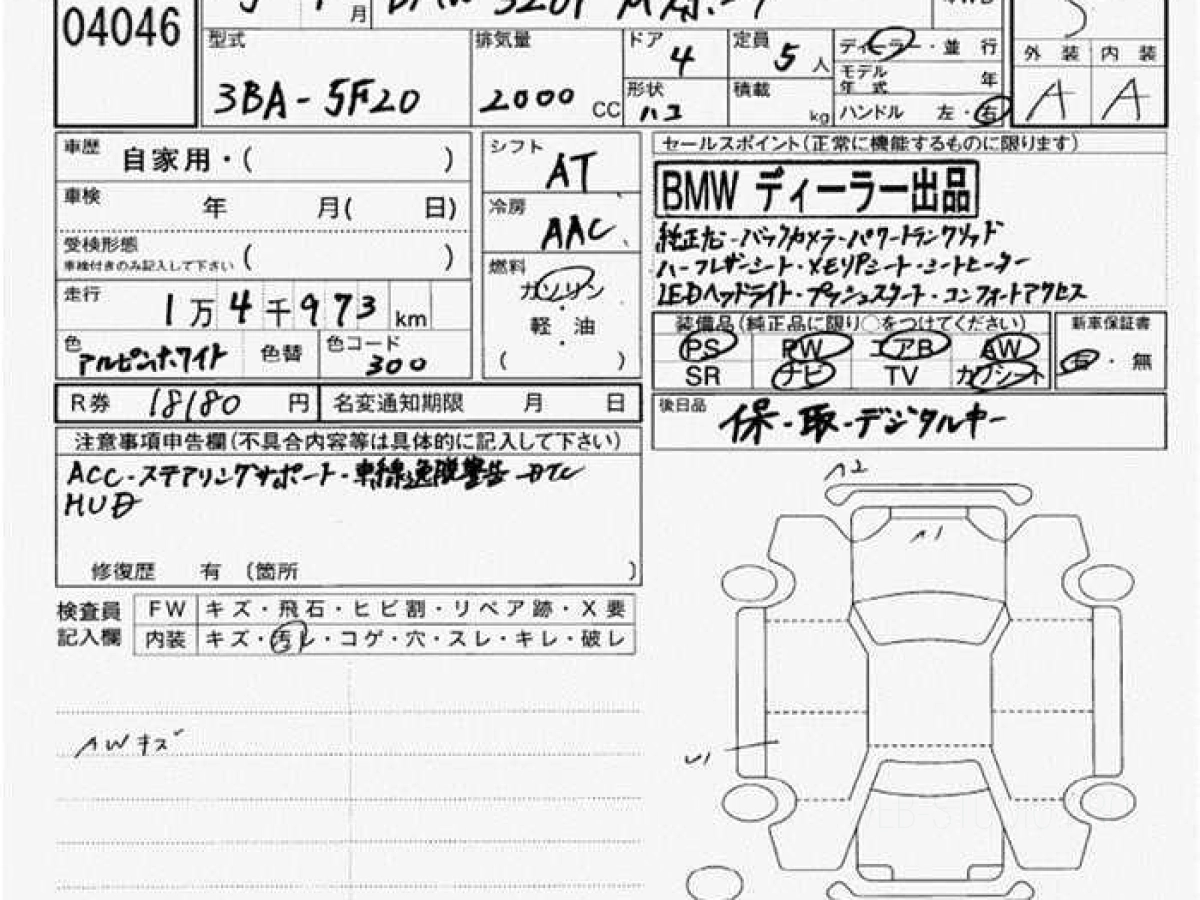 04046
月
BMW 320i Mスポーツ
型式
3BA-5F20
排気量
2000 CC
ドア
4
定員
5 人
形状
ハコ
積載
kg
ディーラー・並行
モデル年式 年
ハンドル 左・右
外装 内装
A A
車歴 自家用・( )
車検 年 月( 日)
受検形態 ( )
車検付きのみ記入して下さい
走行 1万4千973 km
色 アルピンホワイト 色替 色コード 300
シフト AT
冷房 AAC
燃料
ガソリン
・
軽油
・
( )
セールスポイント(正常に機能するものに限ります)
BMW ディーラー出品
純正ナビ・バックカメラ・パワートランクリッド
ハーフレザーシート・メモリアシート・シートヒーター
LEDヘッドライト・プッシュスタート・コンフォートアクセス
装備品(純正品に限り○をつけてください)
PS PW エアB AW
SR ナビ TV カワシート
新車保証書
有・無
R券 18180 円 名変通知期限 月 日
後日品 保-取-デジタルキー
注意事項申告欄(不具合内容等は具体的に記入して下さい)
ACC・ステアリングサポート・車線逸脱警告 DTC
HUD
修復歴 有 (箇所 )
検査員記入欄
FW キズ・飛石・ヒビ割・リペア跡・X要
内装 キズ・汚レ・コゲ・穴・スレ・キレ・破レ
AWキズ
A2
A1
U1